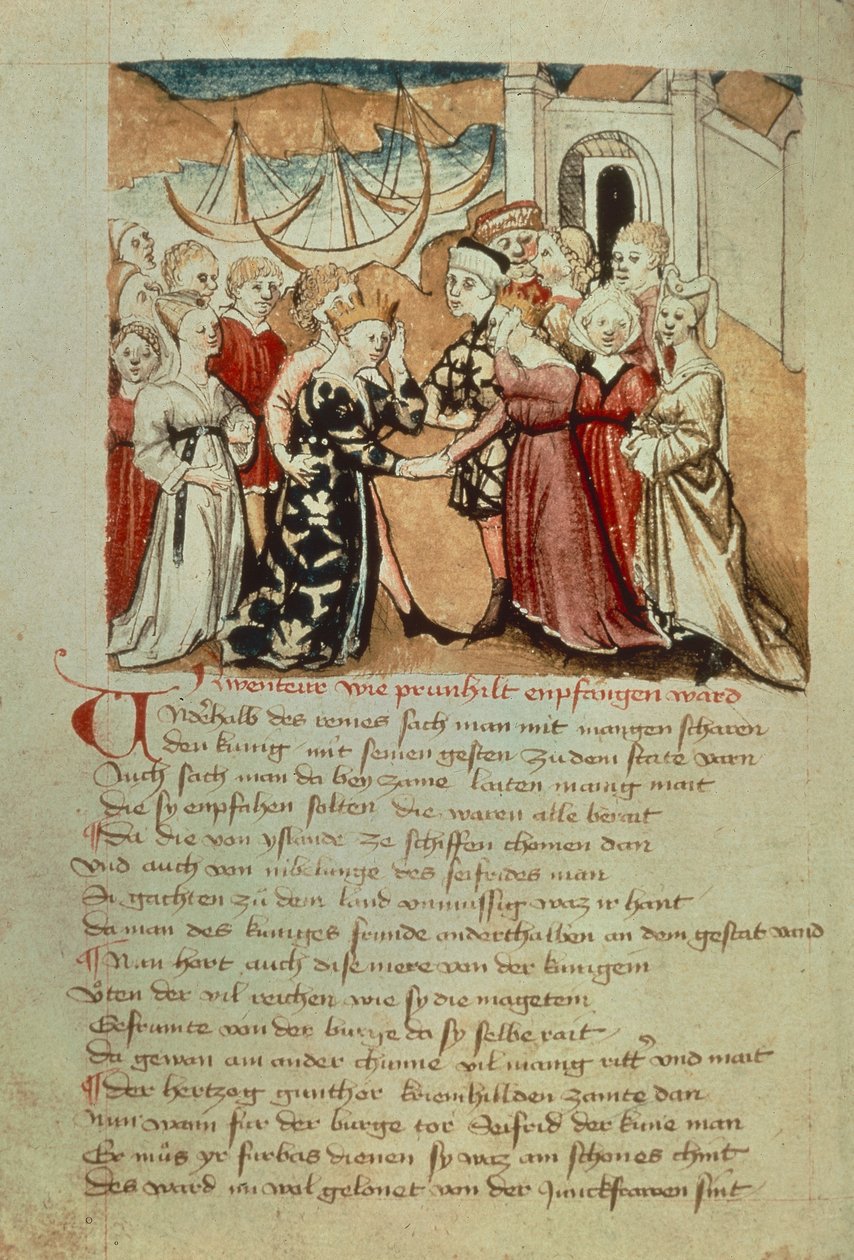 Awenteur wie prunhilt enpfangen ward
Andʼhalb des reines sach man mit mangen scharen
den kunig mit seinen gesten zu dem state varn
Auch sach man da bey zame laiten manig mait
die sy enpfahen solten die waren alle berait
¶ Da die von yslande ze schiffen chomen dan
vnd auch von nibelunge des seifrides man
Si gachten zů dem land vnmussig waz ir hant
da man des kuniges frunde anderthalben an dem gestat vand
¶ Nun hort auch dise mere von der kunigein
vͦten der vil reichen wie sy die magetein
Gefrumte von der burge da sy selbe rait
da gewan an ander chunne vil manig rittʼ vnd mait
¶ der hertzog gunther kriemhillden zamte dan
Nun wann fur der burge tor Seifrid der kune man
Er můs yr furbas dienen sy waz ain schones chint
des ward im wol gelonet von der Junckfrawen sint